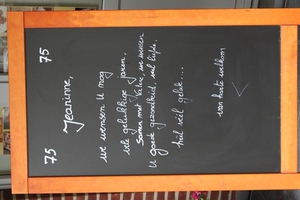 75 75
Jeannine,
we wensen U nog
vele gelukkige jaren.
Samen met Valère, we wensen
U goede gezondheid, veel liefde,
heel veel geluk...
van harte welkom